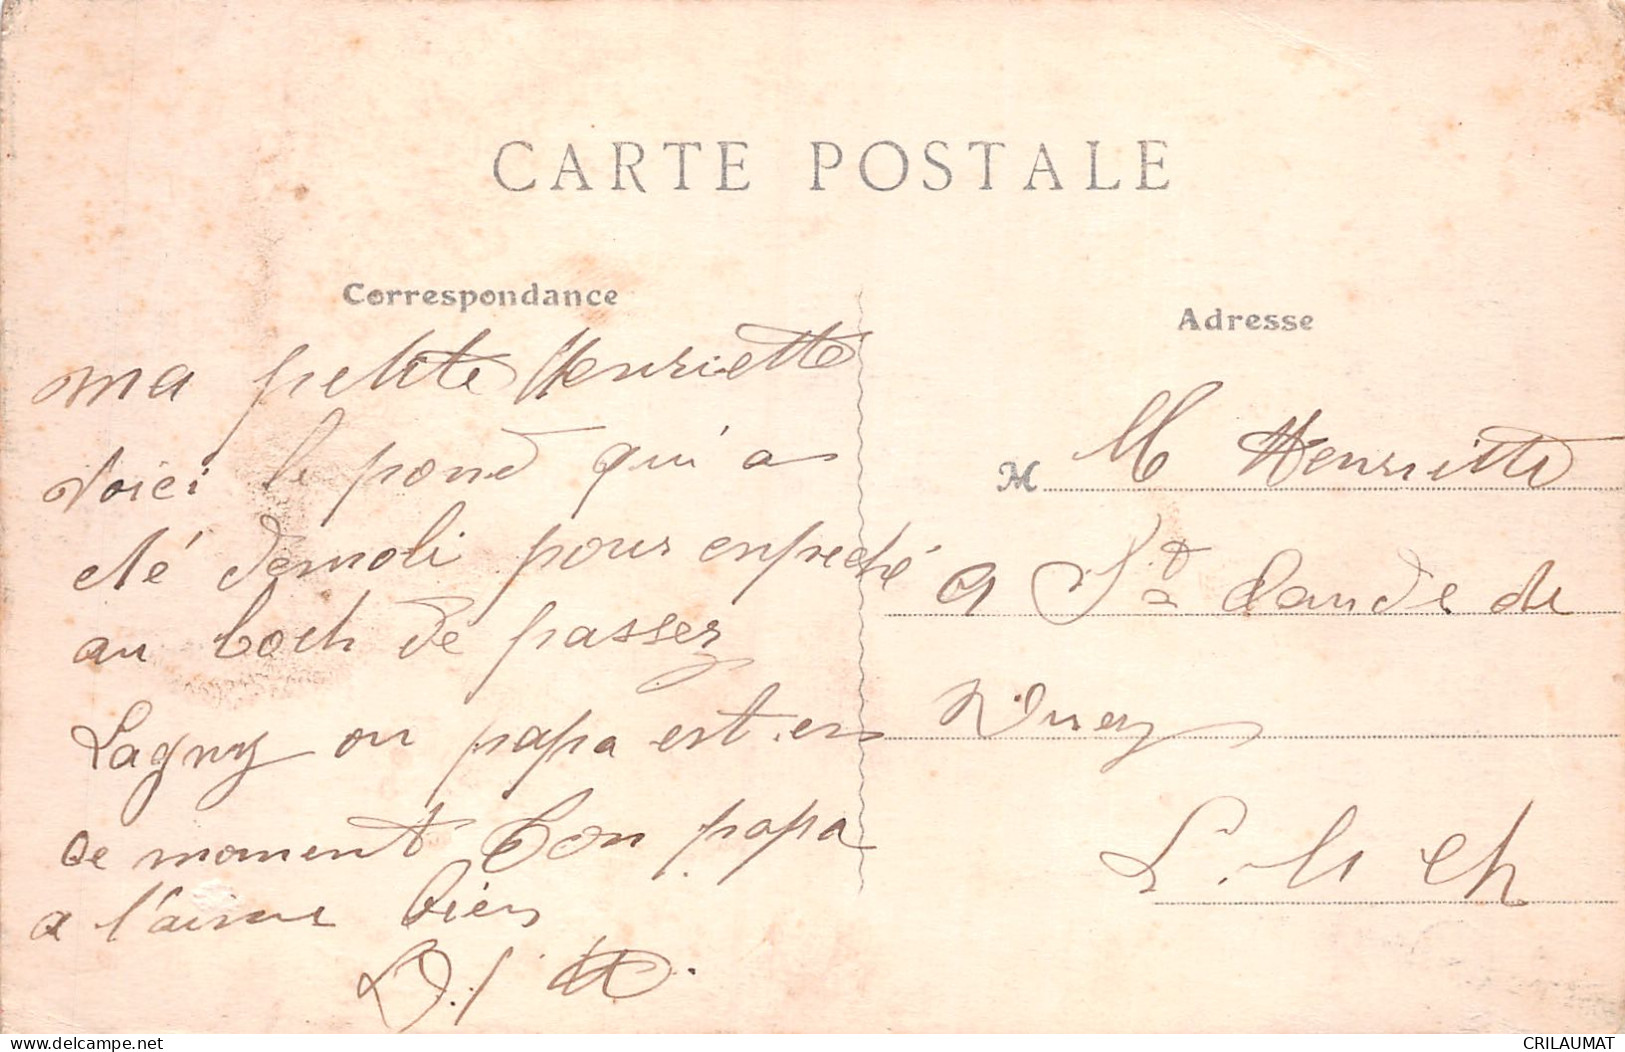 CARTE POSTALE
Correspondance
ma petite Henriette
voici le pond qui a
été demoli pour enpeché
au boch de passer
Lagny ou papa est en
ce moment ton papa
a l'aime bien
Adresse
M M Henriette
a St Claude de
L. et Ch
www.delcampe.net
maxime
CRILAUMAT